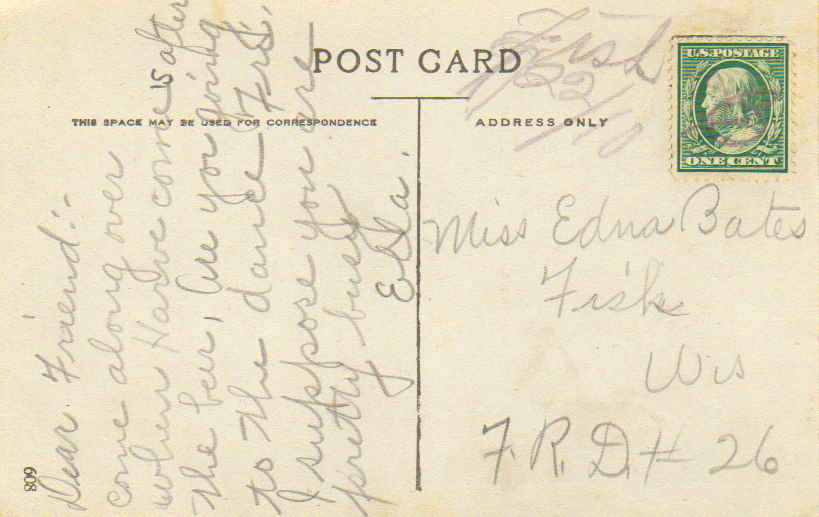 POST CARD
THIS SPACE MAY BE USED FOR CORRESPONDENCE
ADDRESS ONLY
U.S. POSTAGE
ONE CENT
Fish
22/10
Dear Friend:-
come along over
when Harve come is after
the beer, are you going
to the dance Fri.
I suppose you are
pretty busy
Ella.
Miss Edna Bates
Fisk
Wis
F. R. D. # 26
609